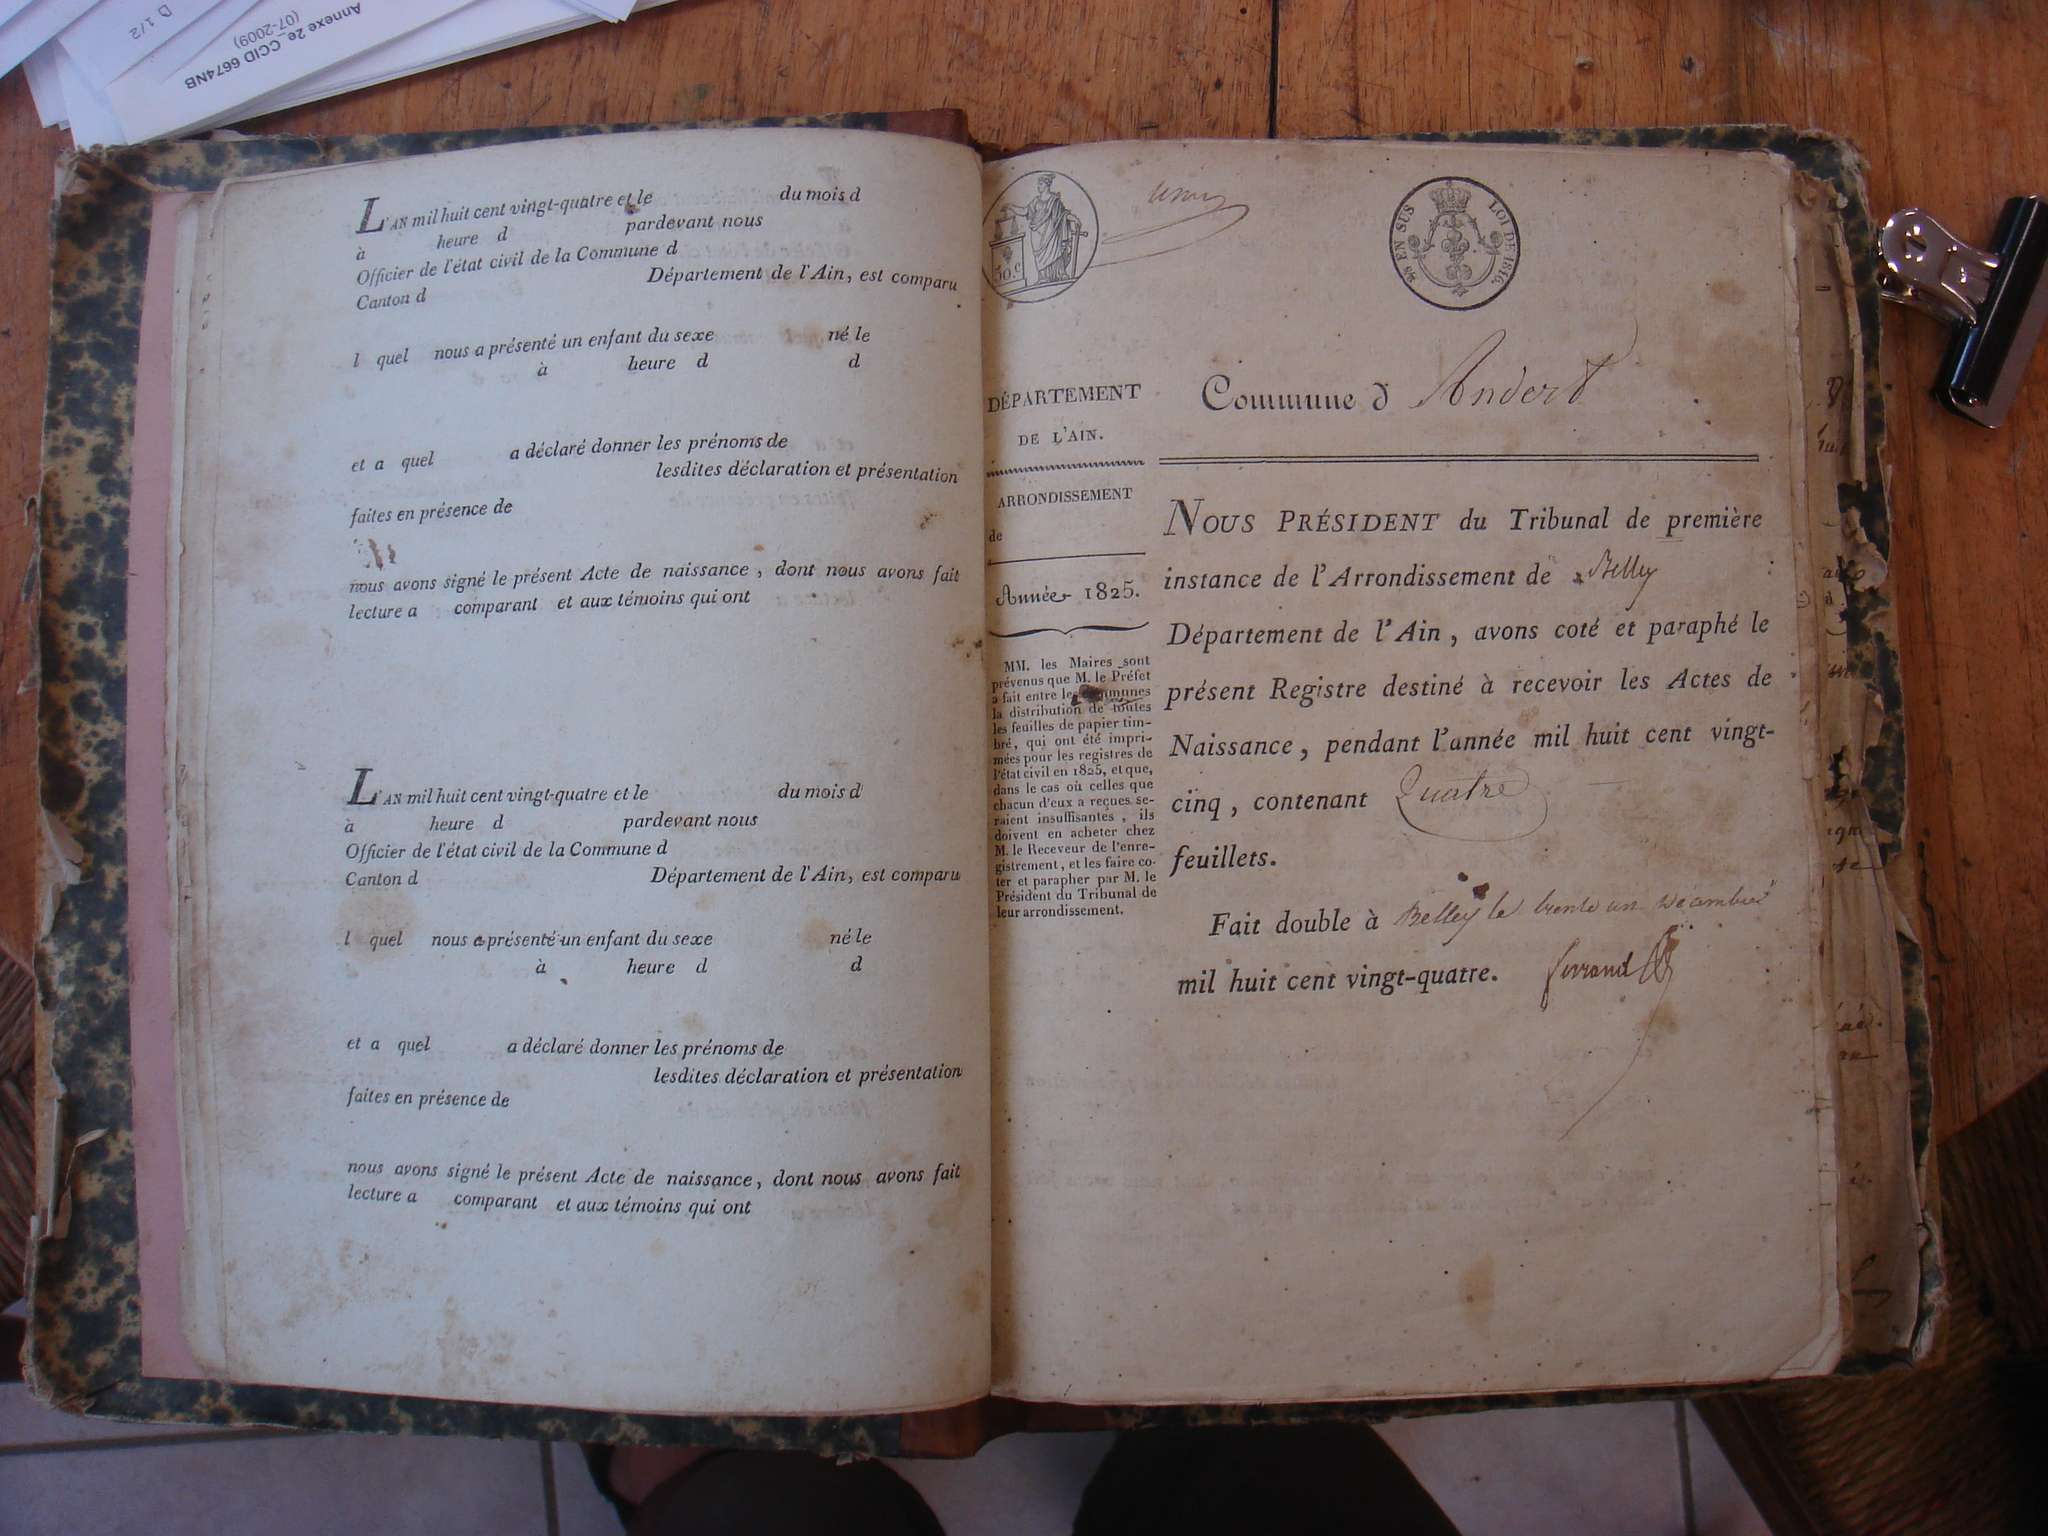 Annexe 2e_CCID 6674NB
(07-2009)
D 1/2
L'AN mil huit cent vingt-quatre et le du mois d
à heure d pardevant nous
Officier de l'état civil de la Commune d
Canton d Département de l'Ain, est comparu
l quel nous a présenté un enfant du sexe né le
à heure d d
et a quel a déclaré donner les prénoms de
lesdites déclaration et présentation
faites en présence de
nous avons signé le présent Acte de naissance, dont nous avons fait
lecture a comparant et aux témoins qui ont
L'AN mil huit cent vingt-quatre et le du mois d
à heure d pardevant nous
Officier de l'état civil de la Commune d
Canton d Département de l'Ain, est comparu
l quel nous a présenté un enfant du sexe né le
à heure d d
et a quel a déclaré donner les prénoms de
lesdites déclaration et présentation
faites en présence de
nous avons signé le présent Acte de naissance, dont nous avons fait
lecture a comparant et aux témoins qui ont
50.c
EN SUS LOI DE 1816.
DÉPARTEMENT
DE L'AIN.
ARRONDISSEMENT
de
Année 1825.
MM. les Maires sont
prévenus que M. le Préfet
a fait entre les communes
la distribution de toutes
les feuilles de papier tim-
bré, qui ont été impri-
mées pour les registres de
l'état civil en 1825, et que,
dans le cas où celles que
chacun d'eux a reçues se-
raient insuffisantes, ils
doivent en acheter chez
M. le Receveur de l'enre-
gistrement, et les faire co-
ter et parapher par M. le
Président du Tribunal de
leur arrondissement.
Commune d Andert
NOUS PRÉSIDENT du Tribunal de première
instance de l'Arrondissement de Belley
Département de l'Ain, avons coté et paraphé le
présent Registre destiné à recevoir les Actes de
Naissance, pendant l'année mil huit cent vingt-
cinq, contenant Quatre
feuillets.
Fait double à Belley le trente un décembre
mil huit cent vingt-quatre. ferrand